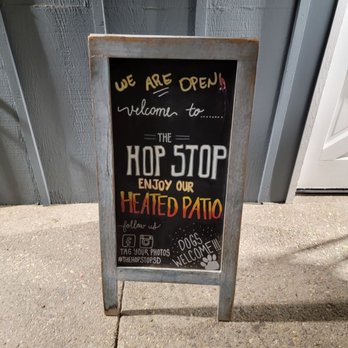 WE ARE OPEN!!
welcome to.......
THE
HOP STOP
ENJOY OUR
HEATED PATIO
follow us
TAG YOUR PHOTOS
#THEHOPSTOPSD
DOGS
WELCOME!!!